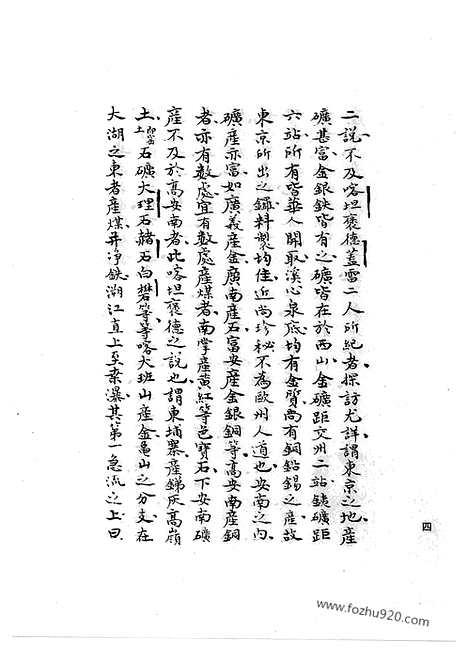 二説不及喀坦褒德蓋雷二人所紀者探訪尤詳謂東京之地産
礦甚富金銀鉄皆有之礦皆在於西山金礦距交州二站銕礦距
六站所有皆華人開取溪心泉底均有金質尚有銅鉛錫之産故
東京所出之鑼料製均佳近尚珍秘不為歐州人道也安南之内
礦産亦富如廣義産金廣南産石富安産金銀銅等高安南産銅
者亦有數處宜有數處産煤者南掌産黄紅等色寶石下安南礦
産不及於高安南者此喀坦褒德之説也謂東埔寨産銻灰高嶺
土石礦大理石赭石白礬等等喀大班山産金亀山之分支在
大湖之東者産煤并净鉄湖江直上至桒瀑其第一急流之上曰
四
www.fozhu920.com